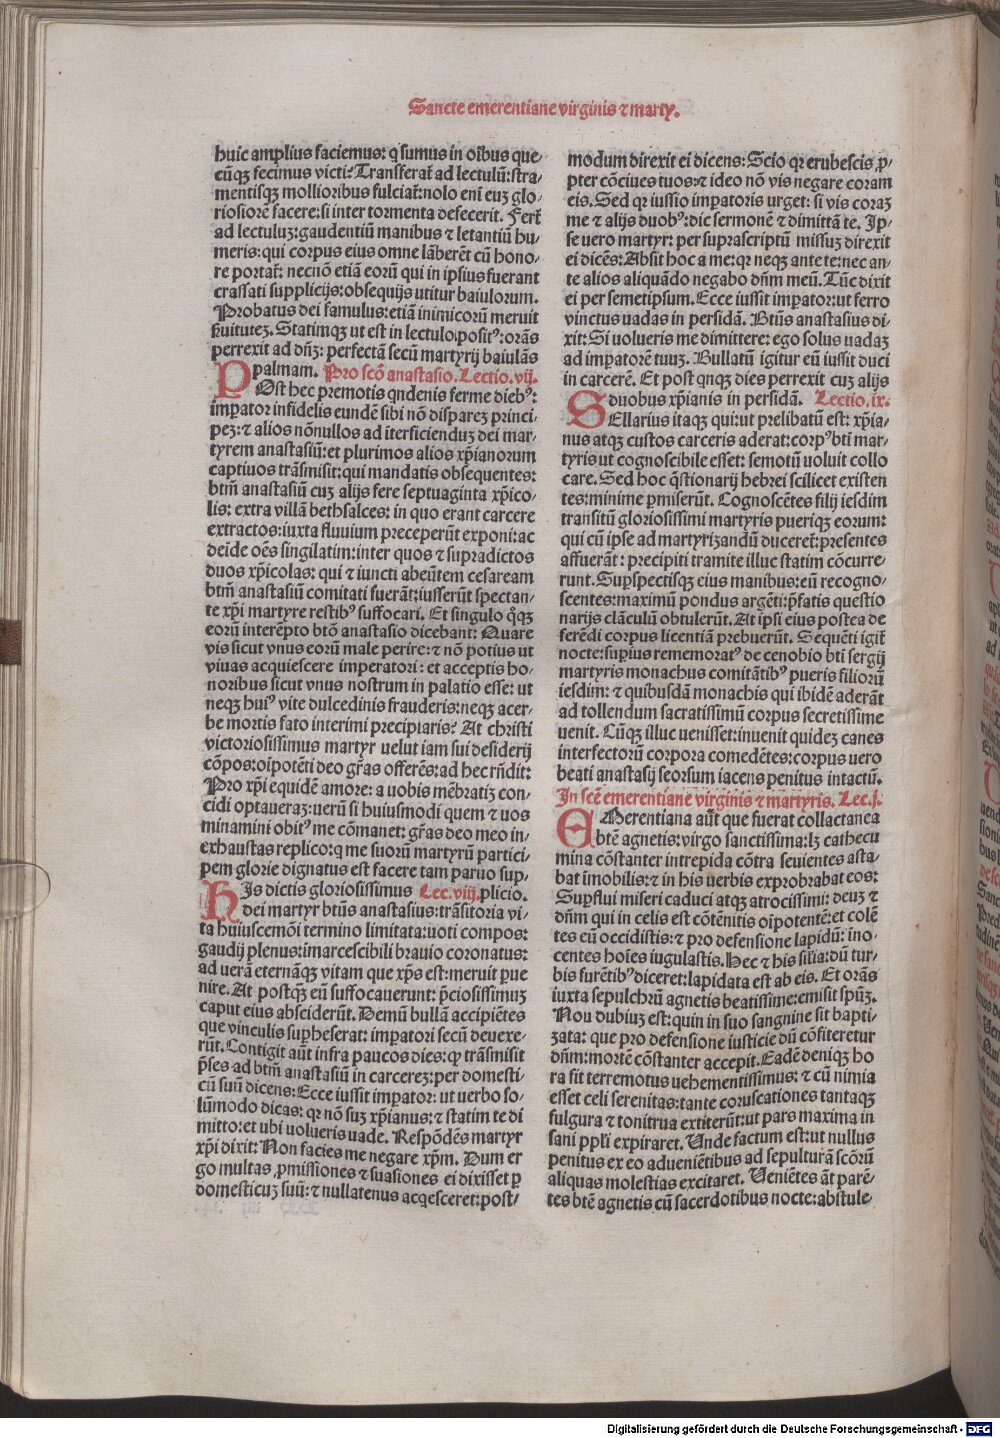 Sancte emerentiane virginis ⁊ marty.
huic amplius faciemus: qͥ sumus in oībus que-
cūqꝫ fecimus victi? Transferat̄ ad lectulū: stra-
mentisqꝫ mollioribus fulciat̄: nolo enī euꝫ glo-
riosiorē facere: si inter tormenta defecerit. Fert̄
ad lectuluꝫ: gaudentiū manibus ⁊ letantiū hu-
meris: qui corpus eius omne lāberēt cū hono-
re portat̄: necnō etiā eorū qui in ipsius fuerant
crassati supplicijs: obsequijs utitur baiulorum.
Probatus dei famulus: etiā inimicorū meruit
s̄uituteꝫ. Statimqꝫ ut est in lectulo positꝰ: orās
perrexit ad dn̄ꝫ: perfectā secū martyrij baiulās
palmam. Pro scō anastasio. Lectio. vij.
POst hec premotis qndenis ferme diebꝰ:
imp̄ator infidelis eundē sibi nō dispareꝫ princi-
peꝫ: ⁊ alios nōnullos ad iterficienduꝫ dei mar-
tyrem anastasiū: et plurimos alios xp̄ianorum
captiuos trāsmisit: qui mandatis obsequentes:
btm̄ anastasiū cuꝫ alijs fere septuaginta xp̄ico-
lis: extra villā bethsalces: in quo erant carcere
extractos: iuxta fluuium preceperūt exponi: ac
deide oēs singilatim: inter quos ⁊ supradictos
duos xp̄icolas: qui ⁊ iuncti abeūtem cesaream
btm̄ anastasiū comitati fuerāt: iusserūt spectan-
te xp̄i martyre restibꝰ suffocari. Et singulo qͦqꝫ
eorū interēpto btō anastasio dicebant: Quare
vis sicut vnus eorū male perire: ⁊ nō potius ut
viuas acquiescere imperatori: et acceptis ho-
noribus sicut vnus nostrum in palatio esse: ut
neqꝫ huiꝰ vite dulcedinis frauderis: neqꝫ acer-
be mortis fato interimi precipiaris? At christi
victoriosissimus martyr uelut iam sui desiderij
cōpos: oīpotēti deo grās offerēs: ad hec rn̄dit:
Pro xp̄i equidē amore: a uobis mēbratiꝫ con-
cidi optaueraꝫ: verū si huiusmodi quem ⁊ uos
minamini obitꝰ me cōmanet: grās deo meo in-
exhaustas replico: qͥ me suorū martyrū partici-
pem glorie dignatus est facere tam paruo sup-
HIs dictis gloriosissimus Lec. viij. plicio.
dei martyr btūs anastasius: trāsitoria vi-
ta huiuscemōi termino limitata: uoti compos:
gaudij plenus: imarcescibili brauio coronatus:
ad uerā eternāqꝫ vitam que xp̄s est: meruit pue
nire. At postqꝫ eū suffocauerunt: p̄ciosissimuꝫ
caput eius absciderūt. Demū bullā accipiētes
que vinculis supheserat: imp̄atori secū deuexe-
rūt. Contigit aūt infra paucos dies: qꝙ trāsmisit
p̄ses ad btm̄ anastasiū in carcereꝫ: per domesti-
cū suū dicens: Ecce iussit imp̄ator: ut uerbo so-
lūmodo dicas: qꝛ nō suꝫ xp̄ianus: ⁊ statim te di
mitto: et ubi uolueris uade. Respōdēs martyr
xp̄i dixit: Non facies me negare xp̄m. Dum er
go multas ꝓmissiones ⁊ suasiones ei dixisset ꝑ
domesticuꝫ suū: ⁊ nullatenus acqͥesceret: post-
modum direxit ei dicens: Scio qꝛ erubescis ꝓ-
pter cōciues tuos: ⁊ ideo nō vis negare coram
eis. Sed qꝛ iussio imp̄atoris urget: si vis coraꝫ
me ⁊ alijs duobꝰ: dic sermonē ⁊ dimittā te. Ip-
se uero martyr: per suprascriptū missuꝫ direxit
ei dicēs: Absit hoc a me: qꝛ neqꝫ ante te: nec an-
te alios aliquādo negabo dn̄m meū. Tūc dixit
ei per semetipsum. Ecce iussit imp̄ator: ut ferro
vinctus uadas in persidā. Btūs anastasius di-
xit: Si uolueris me dimittere: ego solus uadaꝫ
ad imp̄atorē tuuꝫ. Bullatū igitur eū iussit duci
in carcerē. Et post qnqꝫ dies perrexit cuꝫ alijs
duobus xp̄ianis in persidā. Lectio. ix.
SEllarius itaqꝫ qui: ut prelibatū est: xp̄ia-
nus atqꝫ custos carceris aderat: corpꝰ btī mar-
tyris ut cognoscibile esset: semotū uoluit collo
care. Sed hoc qͤstionarij hebrei scilicet existen
tes: minime ꝑmiserūt. Cognoscētes filij iesdim
transitū gloriosissimi martyris pueriqꝫ eorum:
qui cū ipse ad martyrizandū duceret̄: presentes
affuerāt: precipiti tramite illuc statim cōcurre-
runt. Supspectisqꝫ eius manibus: eū recogno-
scentes: maximū pondus argēti: p̄fatis questio
narijs clāculū obtulerūt. At ipsi eius postea de
ferēdi corpus licentiā prebuerūt. Sequēti igit̄
nocte: supius rememoratꝰ de cenobio btī sergij
martyris monachus comitātibꝰ pueris filiorū
iesdim: ⁊ quibusdā monachis qui ibidē aderāt
ad tollendum sacratissimū corpus secretissime
uenit. Cūqꝫ illuc uenisset: inuenit quideꝫ canes
interfectorū corpora comedētes: corpus uero
beati anastasij seorsum iacens penitus intactū.
In scē emerentiane virginis ⁊ martyris. Lec. j.
EMerentiana aūt que fuerat collactanea
btē agnetis: virgo sanctissima: lꝫ cathecu
mina cōstanter intrepida cōtra seuientes asta-
bat īmobilis: ⁊ in his uerbis exprobrabat eos:
Supflui miseri caduci atqꝫ atrocissimi: deuꝫ ⁊
dn̄m qui in celis est cōtēnitis oīpotentē: et colē
tes eū occidistis: ⁊ pro defensione lapidū: īno-
centes hoīes iugulastis. Hec ⁊ his silia: dū tur-
bis furētibꝰ diceret: lapidata est ab eis. Et orās
iuxta sepulchrū agnetis beatissime: emisit spūꝫ.
Nou dubiuꝫ est: quin in suo sangnine sit bapti-
zata: que pro defensione iusticie dū cōfiteretur
dn̄m: mortē cōstanter accepit. Eadē deniqꝫ ho
ra fit terremotus uehementissimus: ⁊ cū nimia
esset celi serenitas: tante coruscationes tantaqꝫ
fulgura ⁊ tonitrua extiterūt: ut pars maxima in
sani ppl̄i expiraret. Unde factum est: ut nullus
penitus ex eo adueniētibus ad sepulturā scōrū
aliquas molestias excitaret. Veniētes āt parē-
tes btē agnetis cū sacerdotibus nocte: abstule-
Digitalisierung gefördert durch die Deutsche Forschungsgemeinschaft - DFG